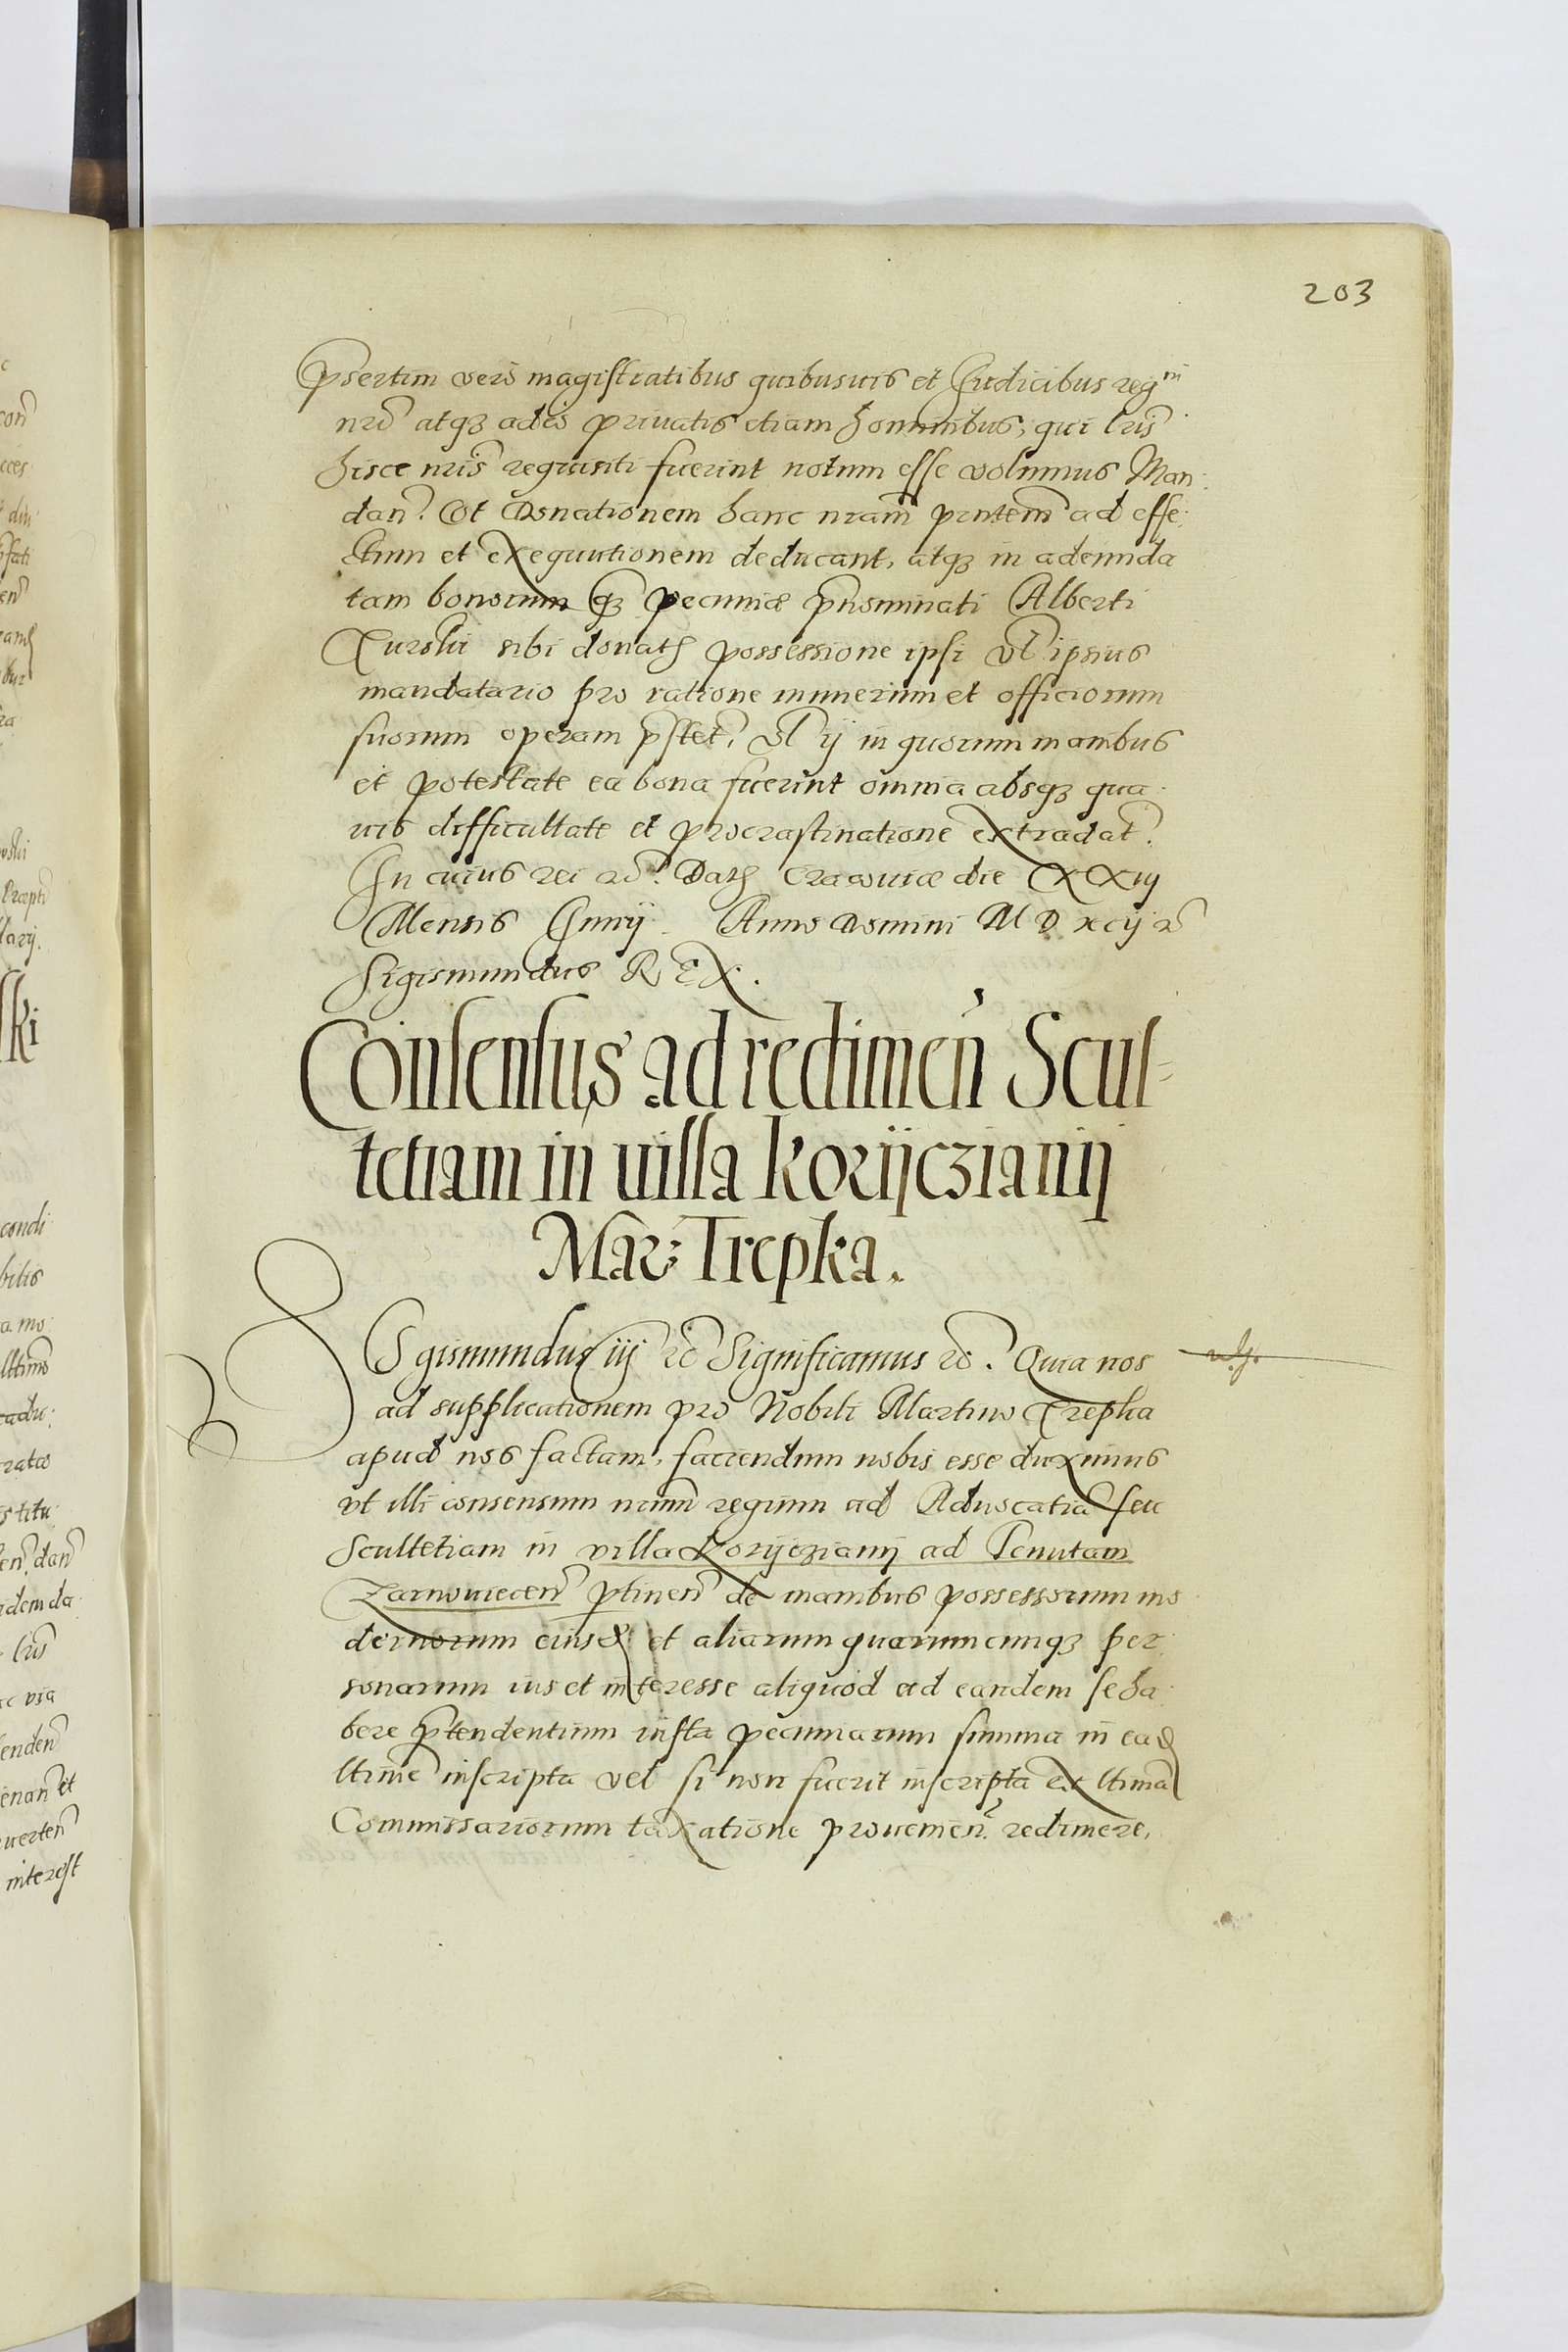 203
pŝertim verò magistratibus quibusuis et Iudicibus reg̃ni
nrõ atq3 adeo priuatis etiam hominibus, qui lrĩs
hisce nrĩs requisiti fuerint notum esse volumus Man-
dañ. Vt Donationem hanc nrãm pñtem ad effe-
ctum et exequutionem deducant, atq3 in adeunda
tam bonorum q̃3 pecuniæ p̃nominati Alberti
Turski sibi donatӕ possessione ipsi vl̃ ipsius
mandatario pro ratione munerum et officiorum
suorum operam p̃stet̃, vl̃ ij in quorum manibus
et potestate ea bona fuerint omnia absq3 qua-
uis difficultate et procrastinatione extradat̃.
In cuius rei rẽ. Datӕ Cracouiæ die XXiij
Mensis Iunij Anno Domini M D xcij rẽ
Sigismundus REX.
Consensus ad redimeñ Scul-
tetiam in uilla Korijczianij
Mar: Trepka.
Sigismundus iij rẽ Significamus rẽ. Quia nos
ad supplicationem pro Nobili Martino Trepka
apud nos factam, faciendum nobis esse duximus
vt illi consensum nrũm regium ad Aduocatiã seu
Scultetiam in villa Korijczianij ad Tenutam
Zarnouieceñ p̃tineñ de manibus possessorum mo-
dernorum eiusd̃ et aliarum quarumcunq3 per-
sonarum ius et interesse aliquod ad eandem se ha-
bere p̃tendentium iusta pecuniarum summa in ead̃
ltime inscripta vel si non fuerit inscripta ex ltima
Commissariorum taxatione prouenieñ. redimere,